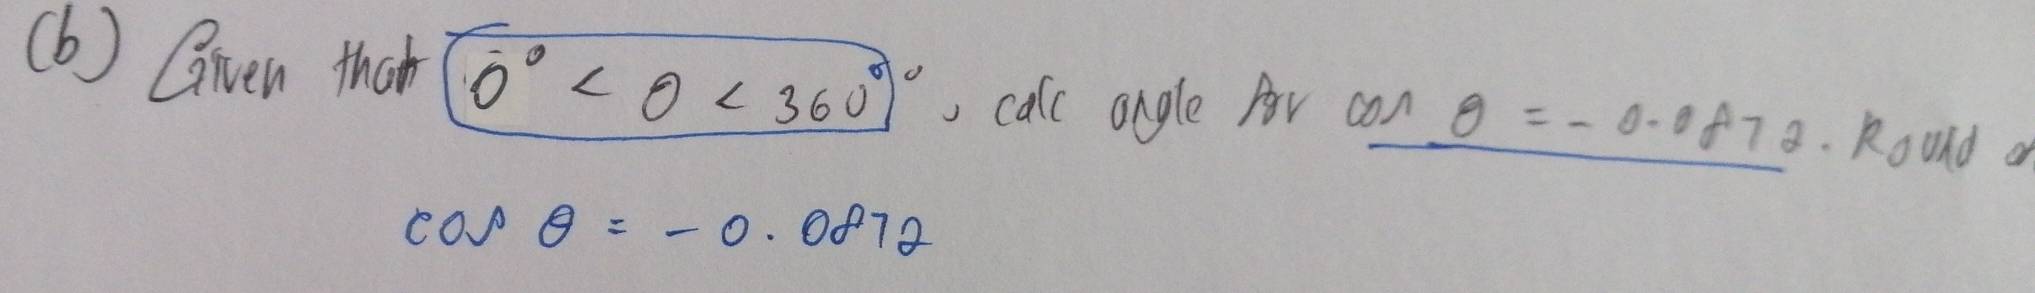 (b) Given that 0° < θ < 360°, calc angle for cos θ = - 0.0872. Round
cos θ = - 0.0872